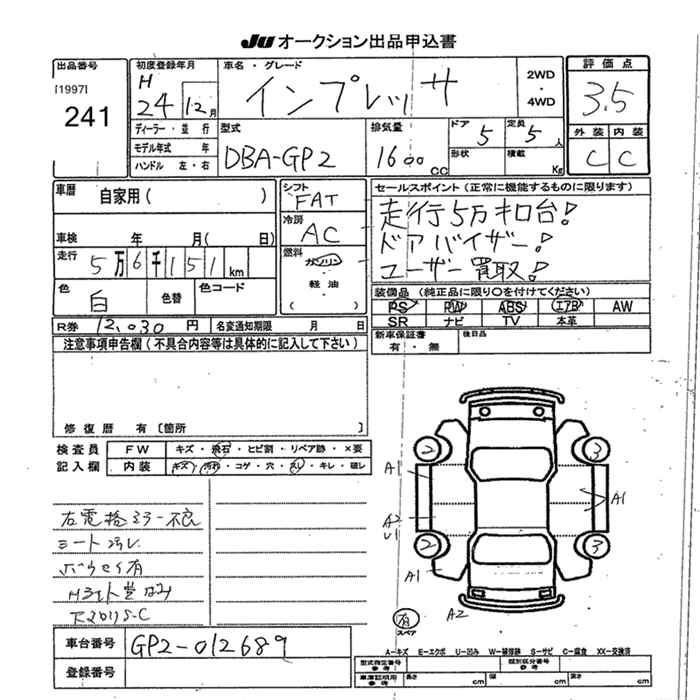 JU オークション出品申込書
出品番号
[1997]
241
初度登録年月
H
24 12月
ディーラー・並行
モデル年式 年
ハンドル 左・右
車名・グレード
インプレッサ
2WD
・
4WD
型式
DBA-GP2
排気量
1600cc
ドア
5
定員
5人
形状
積載
Kg
評価点
3.5
外装 内装
C C
車暦
自家用( )
車検 年 月( 日)
走行 5万6千151km
色 白 色替 色コード
シフト
FAT
冷房
AC
燃料
ガソリン
・
軽油
・
( )
セールスポイント(正常に機能するものに限ります)
走行5万キロ台!
ドアバイザー!
ユーザー買取!
装備品(純正品に限り○を付けてください)
PS PW ABS エアB AW
SR ナビ TV 本革
新車保証書
有・無
後日品
R券 12,030円 名変通知期限 月 日
注意事項申告欄(不具合内容等は具体的に記入して下さい)
修復歴 有〔箇所 〕
検査員
記入欄
FW キズ・飛石・ヒビ割・リペア跡・×要
内装 キズ・汚れ・コゲ・穴・スレ・キレ・破レ
右電格ミラー不良
シート汚レ
2 3
A1 A1
A2
U1
2 3
A1
A2
有
スペア
A-キズ E-エクボ U-凹み W-補修跡 S-サビ C-腐食 XX-交換済
車台番号 GP2-012689
登録番号
型式指定番号
参考
類別区分番号
参考
車庫証明用
参考
長さ cm 幅 cm 高さ cm